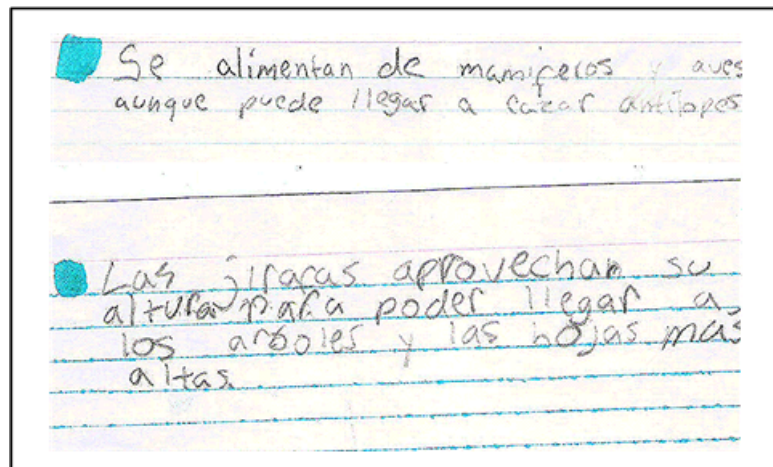 Se alimentan de mamiferos y aves
aunque puede llegar a cazar antilopes
Las jirafas aprovechan su
altura para poder llegar a
los arboles y las hojas mas
altas